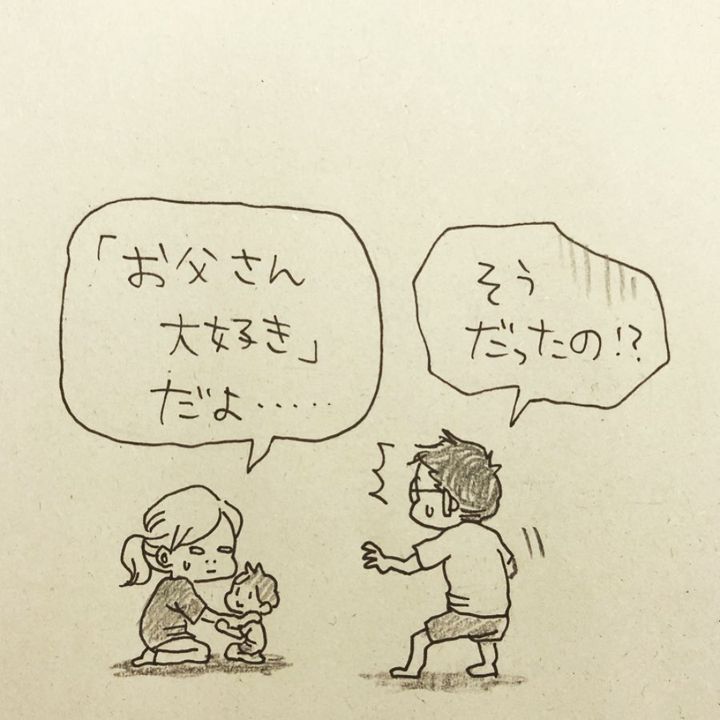 「お父さん
大好き」
だよ……
そう
だったの!?